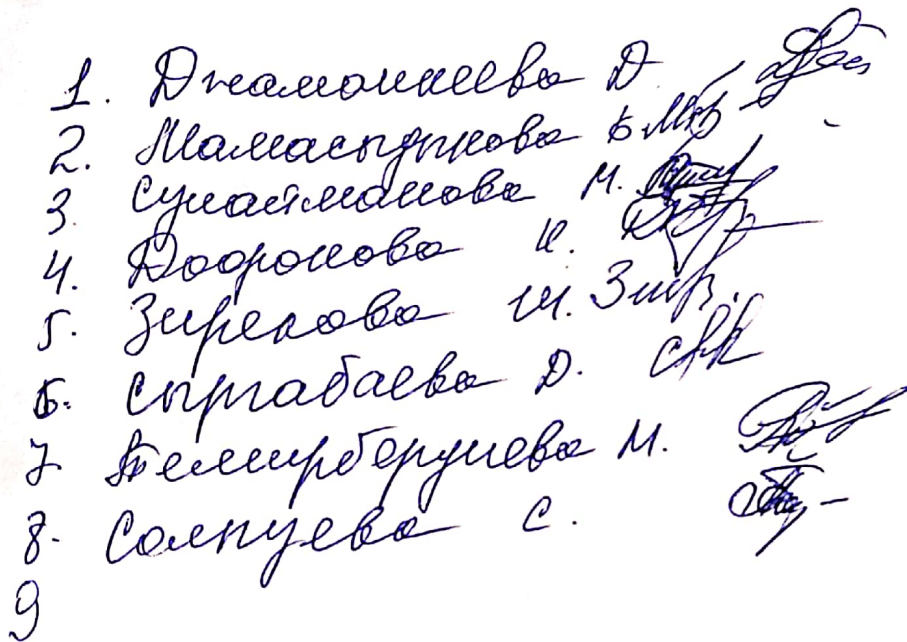 1. Джамоннева Д
2. Мамасыдыкова Б
3. Сулайманова М.
4. Дооронова К.
5. Зирекова Ш.
6. Сыргабаева Д.
7 Темирбердиева М.
8. Солпуева С.
9